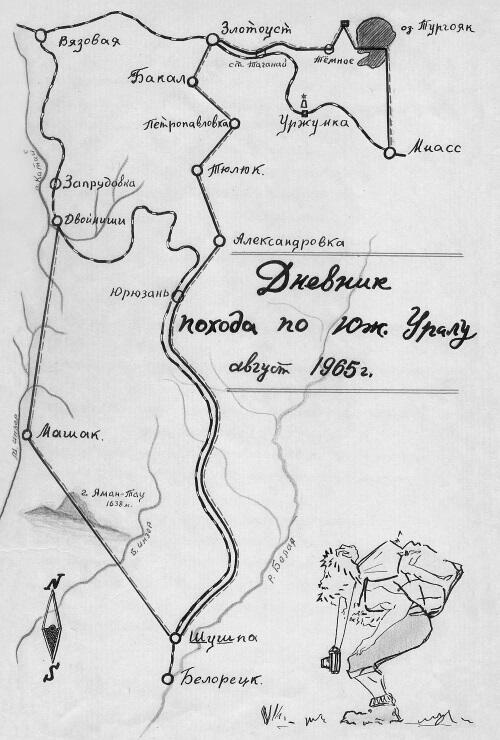 Вязовая
Златоуст
оз. Тургояк
ст. Таганай
Тёмное
Бакал
Петропавловка
Уржумка
Миасс
р. Катав
Запрудовка
Тюлюк.
Двойниши
Александровка
Юрюзань
Дневник
похода по Юж. Уралу
август 1965 г.
М. Инзер
Машак.
г. Яман-Тау
1638 м.
Б. Инзер
р. Белая
N
S
Шушпа
Белорецк.